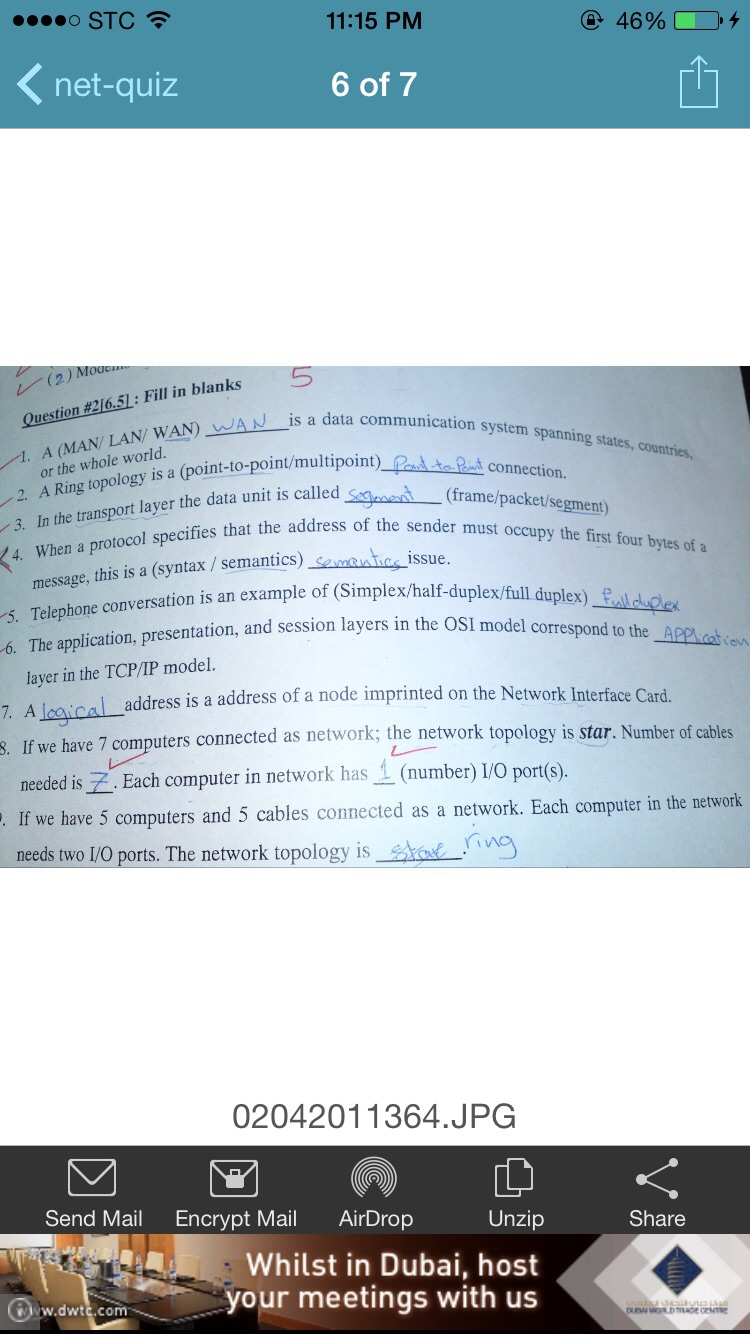 STC 11:15 PM 46%
net-quiz 6 of 7
(2)
5
Question #2[6.5]: Fill in blanks
1. A (MAN/ LAN/ WAN) WAN is a data communication system spanning states, countries,
or the whole world.
2. A Ring topology is a (point-to-point/multipoint) Point-to-Point connection.
3. In the transport layer the data unit is called segment (frame/packet/segment)
4. When a protocol specifies that the address of the sender must occupy the first four bytes of a
message, this is a (syntax / semantics) semantics issue.
5. Telephone conversation is an example of (Simplex/half-duplex/full duplex) full duplex
6. The application, presentation, and session layers in the OSI model correspond to the APPlication
layer in the TCP/IP model.
7. A logical address is a address of a node imprinted on the Network Interface Card.
8. If we have 7 computers connected as network; the network topology is star. Number of cables
needed is 7. Each computer in network has 1 (number) I/O port(s).
. If we have 5 computers and 5 cables connected as a network. Each computer in the network
needs two I/O ports. The network topology is star. ring
02042011364.JPG
Send Mail Encrypt Mail AirDrop Unzip Share
Whilst in Dubai, host
your meetings with us
www.dwtc.com
DUBAI WORLD TRADE CENTRE